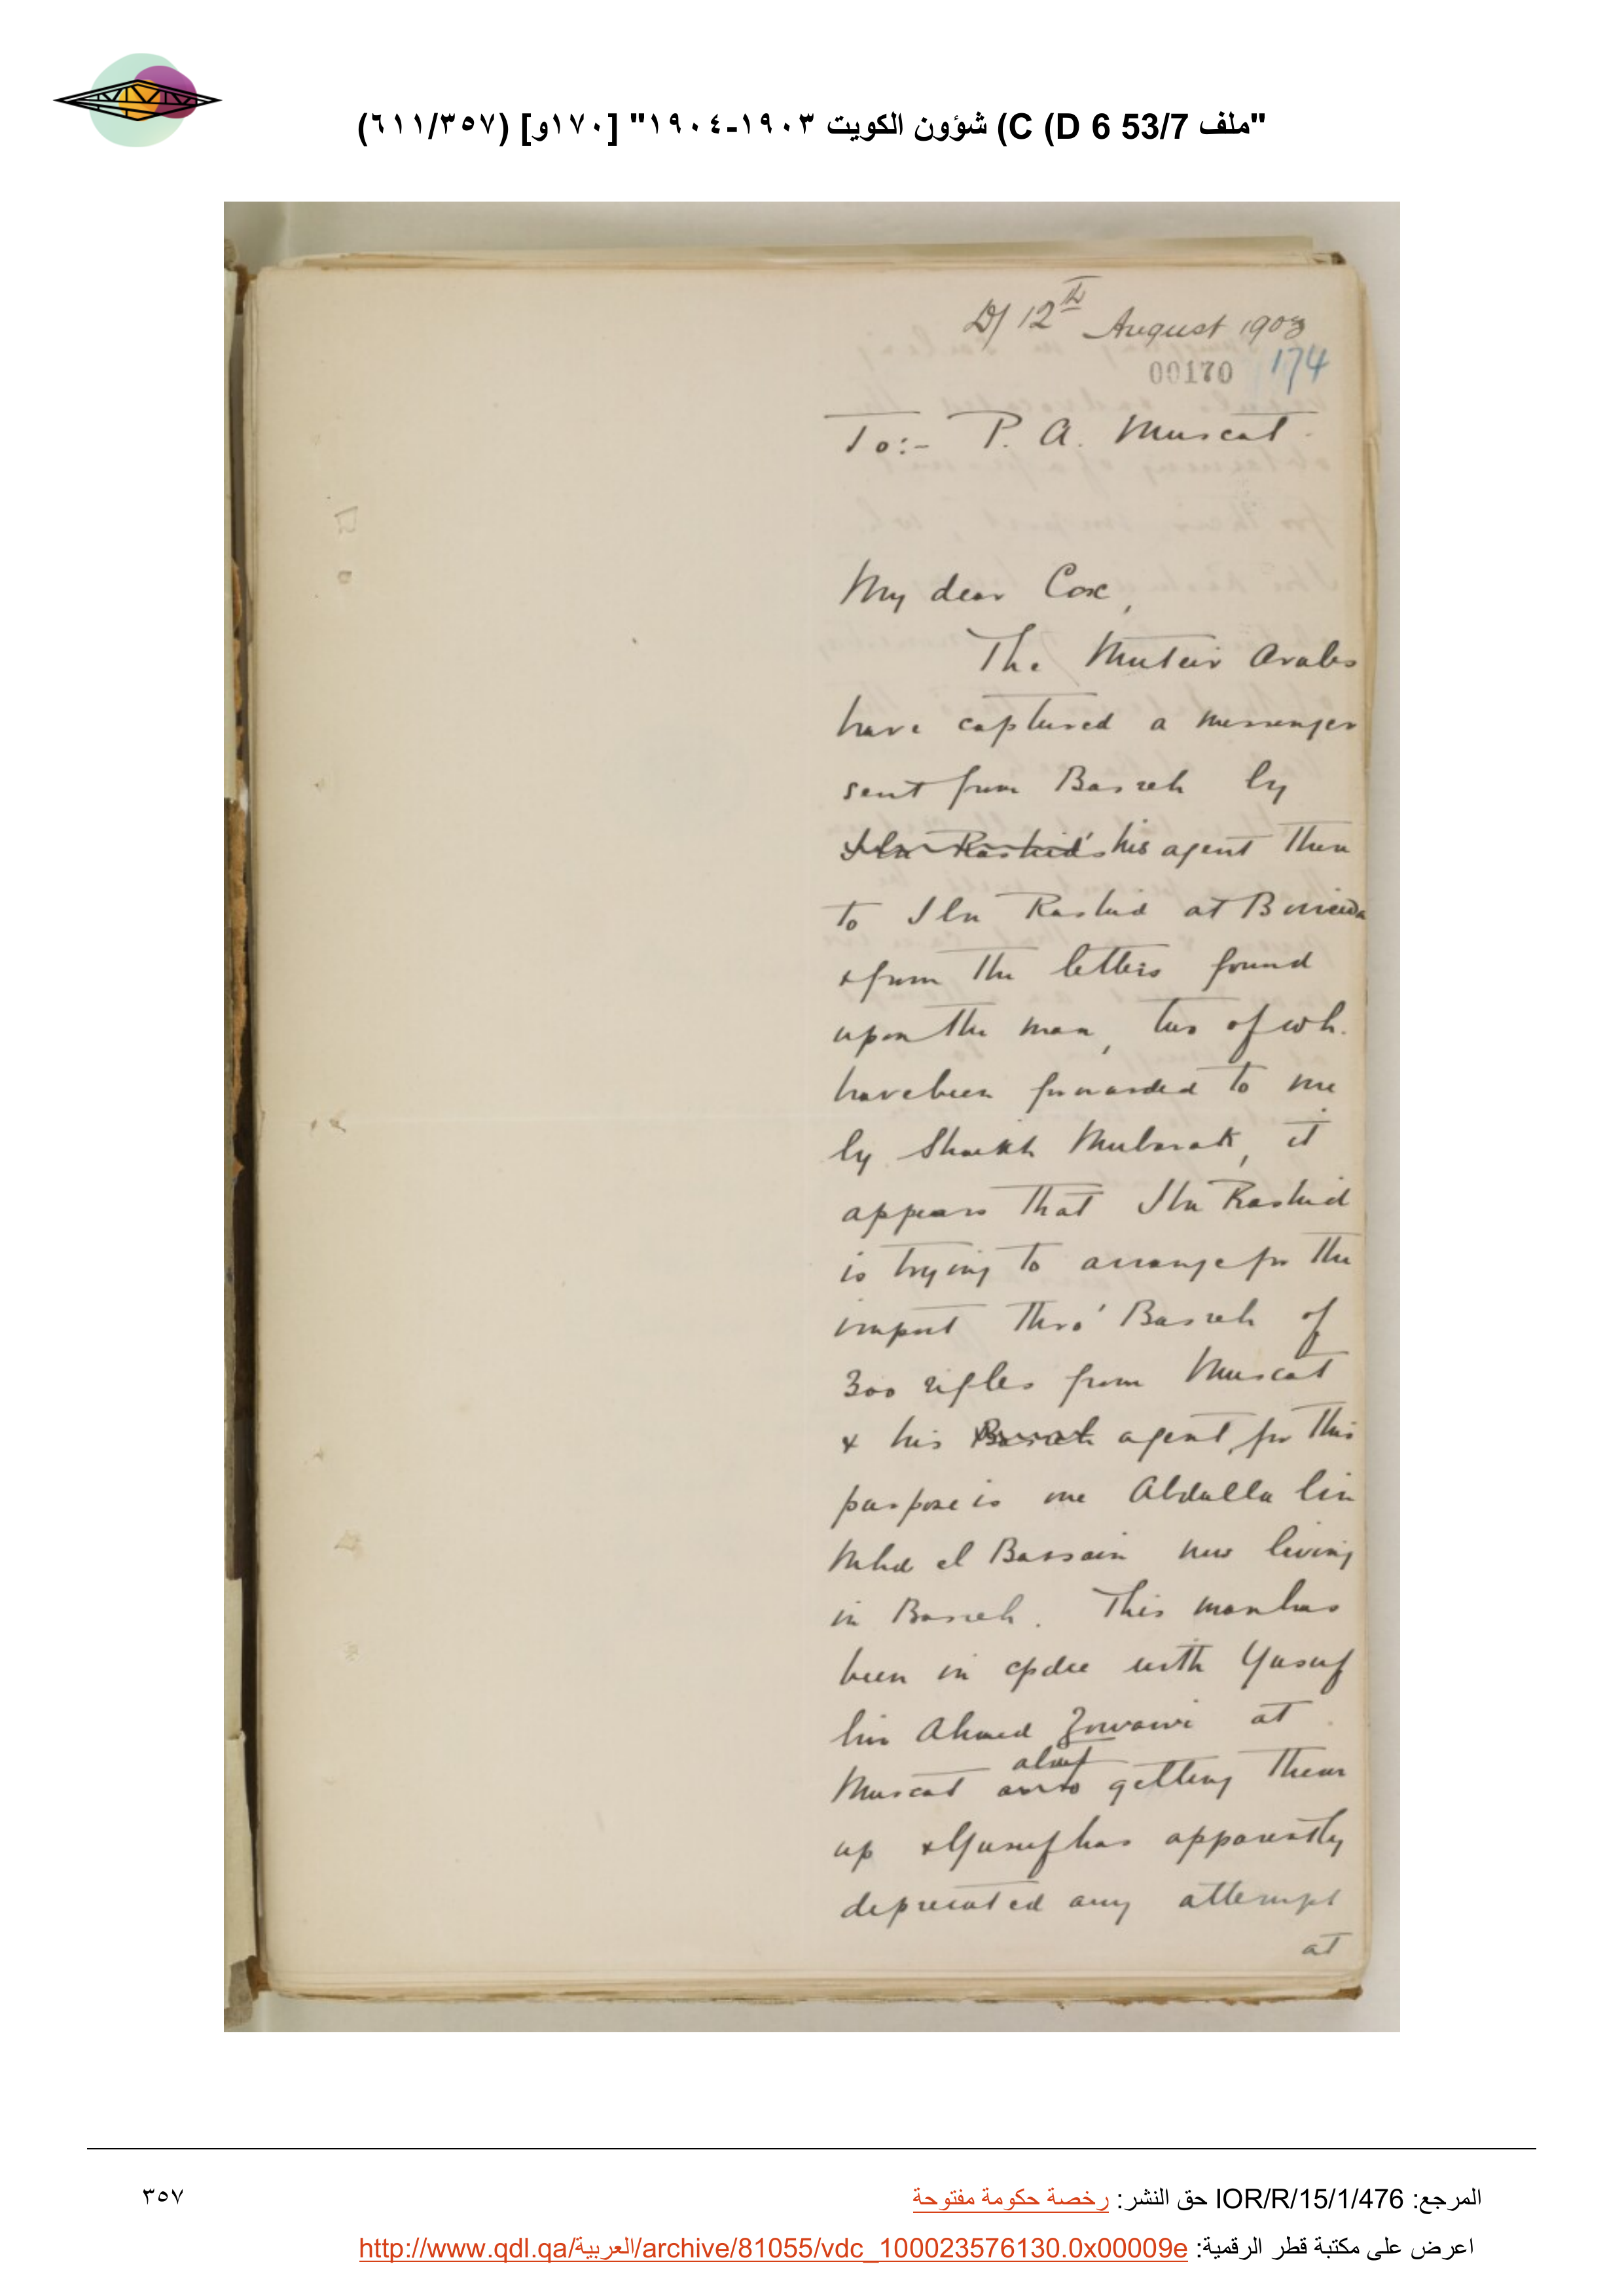 "ملف 53/7 C (D 6) شؤون الكويت ١٩٠٣-١٩٠٤" [١٧٠و] (٦١١/٣٥٧)
D/ 12th August 1903
00170 174
To:- P. A. Muscat.
My dear Cox,
The Muteir Arabs
have captured a messenger
sent from Basreh by
Ibn Rashid's his agent there
to Ibn Rashid at Boreida
& from the letters found
upon the man, two of wh.
have been forwarded to me
by Shaikh Mubarak, it
appears that Ibn Rashid
is trying to arrange for the
import thro' Basreh of
300 rifles from Muscat
& his Basreh agent for this
purpose is one Abdulla bin
Mhd el Bassain now living
in Basreh. This man has
been in cpdce with Yusuf
bin Ahmed Zowawi at
about
Muscat getting them
up & Yusuf has apparently
deprecated any attempt
at
المرجع: IOR/R/15/1/476 حق النشر: رخصة حكومة مفتوحة
٣٥٧
اعرض على مكتبة قطر الرقمية: http://www.qdl.qa/العربية/archive/81055/vdc_100023576130.0x00009e